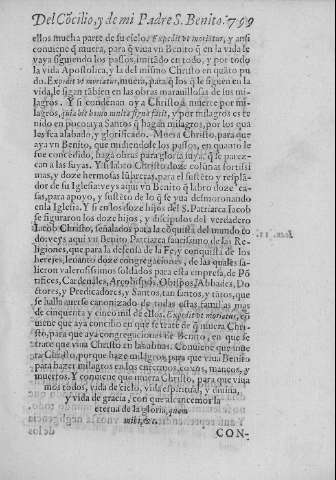 Del Cõcilio, y de mi Padre S. Benito. 799
ellos mucha parte de su cielo. Expedit vt moriatur, y ansi
conuiene q̃ muera, para q̃ viua vn Benito q̃ en la vida le
vaya siguiendo los passos, imitãdo en todo, y por todo
la vida Apostolica, y la del mismo Christo en quãto pu
do. Expedit vt moriatur, muera, para q̃ los q̃ le siguen en la
vida, le sigan tãbien en las obras marauillosas de sus mi-
lagros. Y si condenan oy a Christo à muerte por mi-
lagros, quia hic homo multa signa facit, y por milagros es te
nido en poco, aya Santos q̃ hagan milagros, por los quales
sea alabado, y glorificado. Muera Christo, para que
aya vn Benito, que midiendole los passos, en quanto le
fue concedido, haga obras para gloria suya, q̃ se parez-
can a las suyas. Y si labro Christo doze colunas fortissi
mas, y doze hermosas lũbreras, para el sustẽto y resplã-
dor de su Iglesia: veys aqui vn Benito q̃ labro doze ca-
sas, para apoyo, y sustẽto de lo q̃ se yua desmoronando
en la Iglesia. Y si en los doze hijos del S. Patriarca Iacob
se figuraron los doze hijos, y discipulos del verdadero
Iacob Christo, señalados para la cõquista del mundo to
do: veys aqui vn Benito Patriarca sanctissimo de las Re-
ligiones, que para la defensa de la Fe, y conquista de los
herejes, leuanto doze congregaciones, de las quales sa-
lieron valerosissimos soldados para esta empresa, de Põ
tifices, Cardenales, Arçobispos, Obispos, Abbades, Do
ctores, y Predicadores, y Santos, tan santos, y tãtos, que
se halla auerse canonizado de todas estas familias mas
de cinquenta y cinco mil de ellos. Expedit vt moriatur, cõ
uiene que aya concilio en que se trate de q̃ muera Chri-
sto, para que aya congregaciones de Benito, en que se
trate que viua Christo en las almas. Conuiene que mue
ra Christo, porque haze milagros, para que viua Benito
para hazer milagros en los enfermos, coxos, mancos, y
muertos. Y conuiene que muera Christo, para que viua
mos todos, vida de cielo, vida espiritual, y diuina,
y vida de gracia, con que alcancemos la
eterna de la gloria, quam
mihi, &c.
CON-